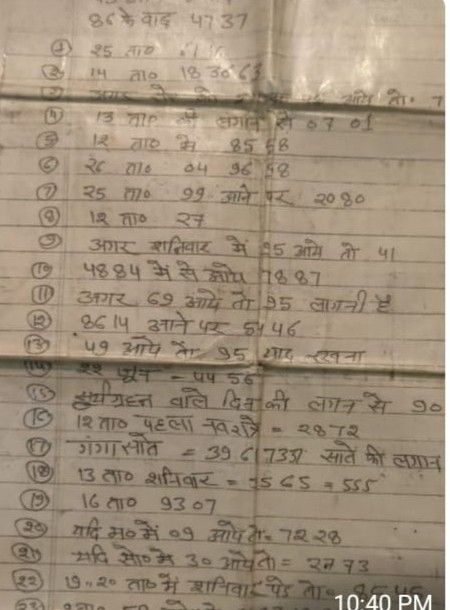 86 के बाद 47 37
① 25 ता०
② 14 ता० 18 30 63
④ 13 ता० की लगान से 07 01
⑤ 12 ता० में 85 58
⑥ 26 ता० 04 96 58
⑦ 25 ता० 99 आने पर 20 80
⑧ 12 ता० 27
⑨ अगर शनिवार में 95 आये तो 41
⑩ 48 84 में से आये 78 87
⑪ अगर 69 आये तो 95 लागनी है
⑫ 86 14 आने पर 54 46
⑬ 49 आये तो 95 याद रखना
⑭ 22 जून = 44 56
⑮ सूर्यग्रहन वाले दिन की लगन से 90
⑯ 12 ता० पहला नवरात्रे = 28 72
⑰ गंगा स्नोत = 39 61 73 साते की लगान
⑱ 13 ता० शनिवार = 65 = 555
⑲ 16 ता० 93 07
⑳ यदि म० में 09 आये तो = 72 28
㉑ यदि सो० में 30 आये तो = 27 73
㉒ 19.. 20 ता० में शनिवार पड़े तो
10:40 PM